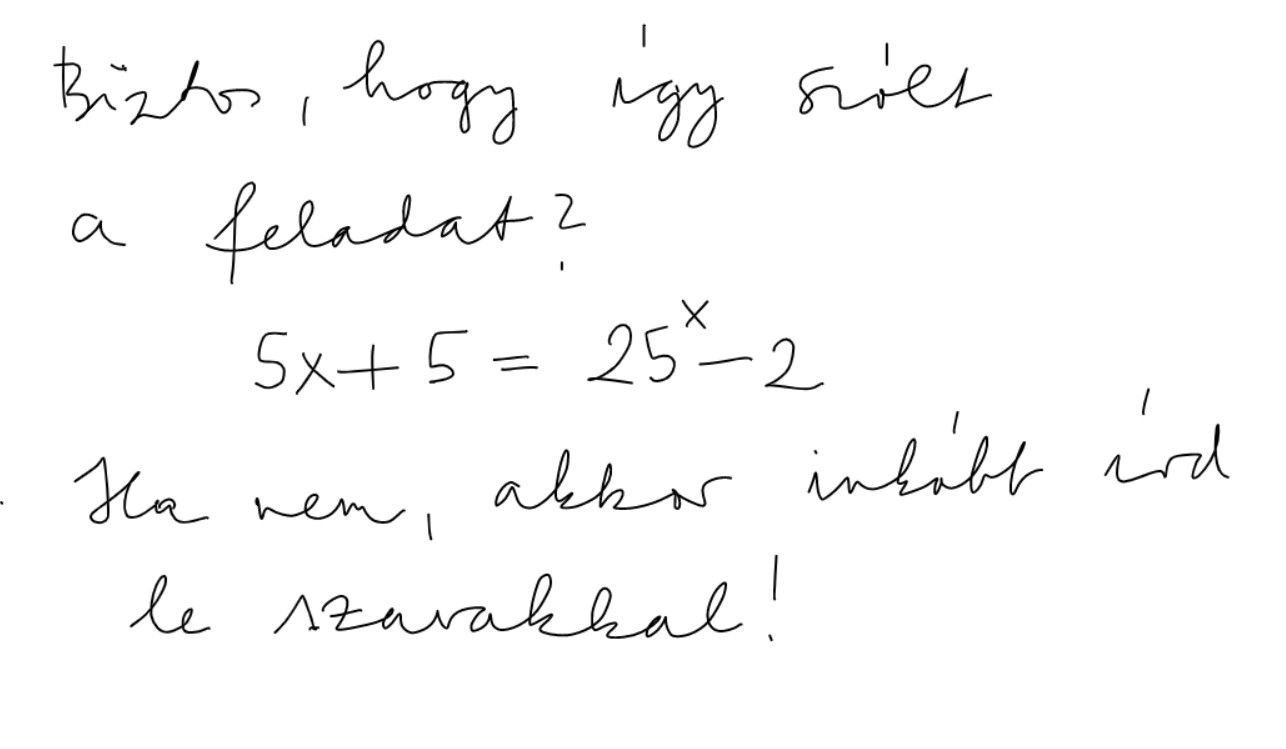 Biztos, hogy így szólt
a feladat?
5x + 5 = 25^x - 2
Ha nem, akkor inkább írd
le szavakkal!